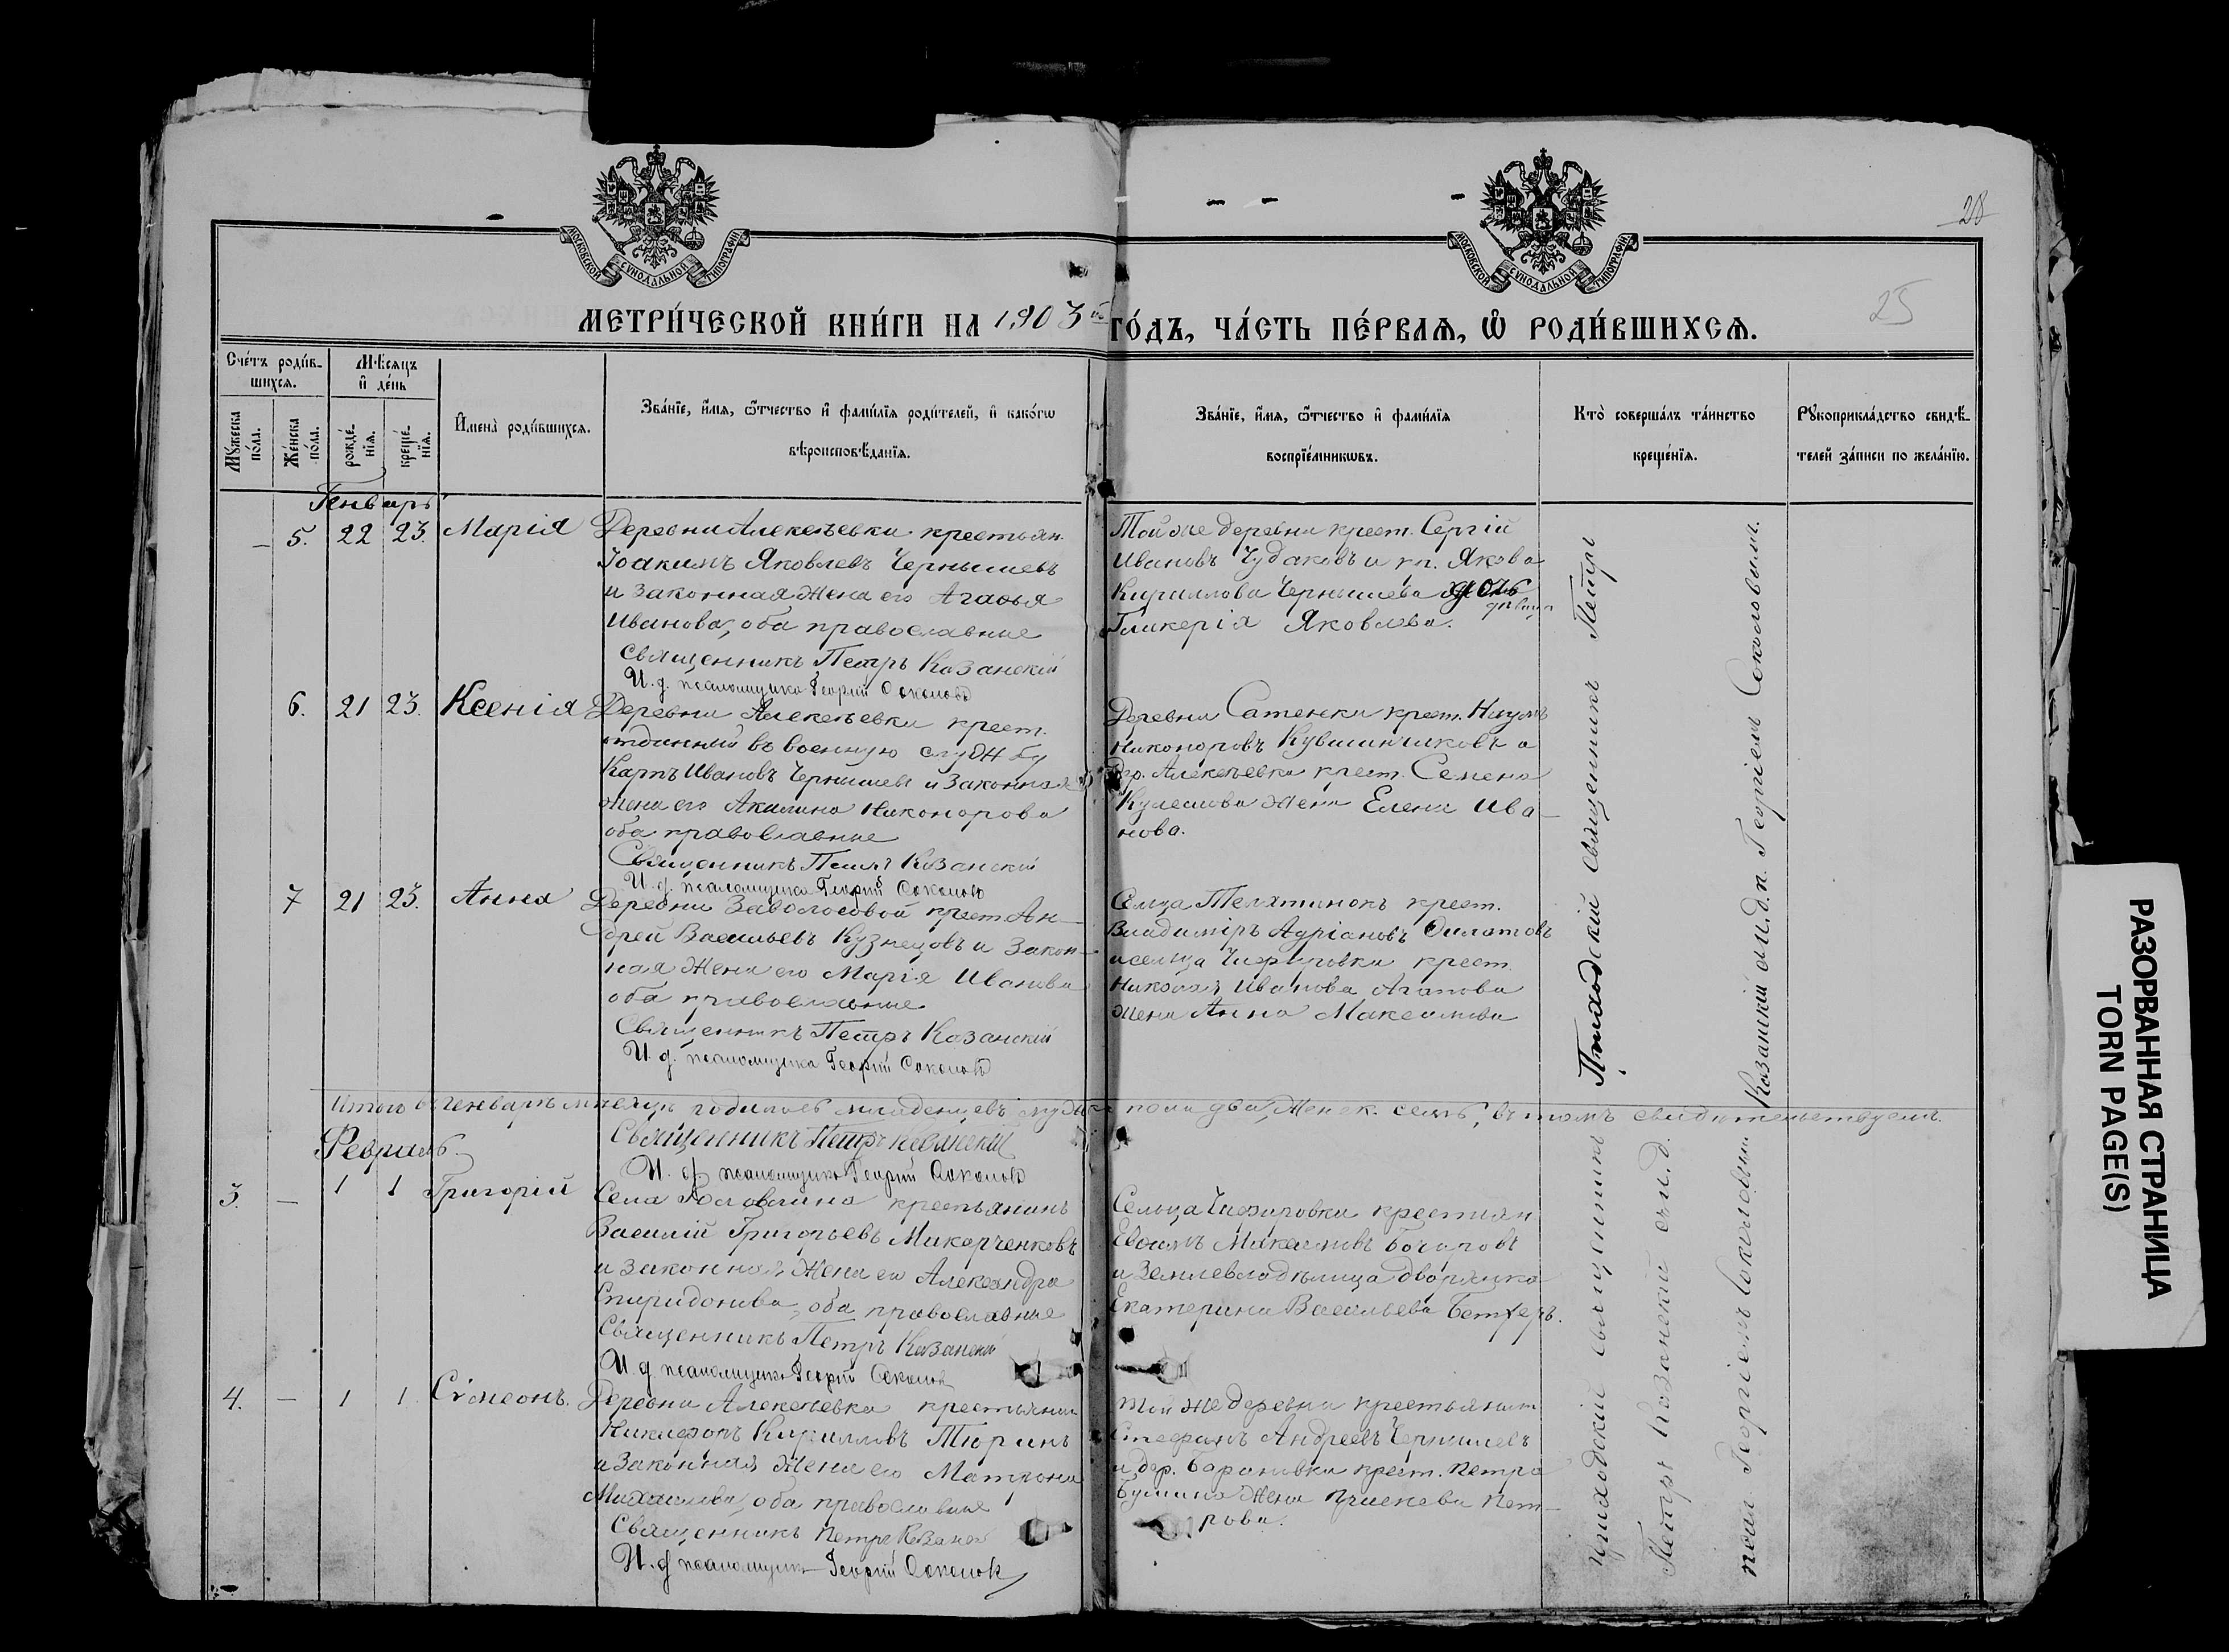 28
25
МОСКОВСКОЙ СѴНОДАЛЬНОЙ ТИПОГРАФІИ
МОСКОВСКОЙ СѴНОДАЛЬНОЙ ТИПОГРАФІИ
МЕТРИ́ЧЕСКОЙ КНИ́ГИ НА 1903 ГО́ДЪ, ЧА́СТЬ ПЕ́РВАѦ, Ѡ҆ РОДИ́ВШИХСѦ.
Сче́тъ роди́в-
шихсѧ.
Мꙋ́жеска
по́ла.
Же́нска
по́ла.
Мѣ́сѧцъ
и҆ де́нь
рожде́-
нїѧ.
креще́-
нїѧ.
И҆мена̀ роди́вшихсѧ.
Зва́нїе, и҆́мѧ, ѻ҆́тчество и҆ фами́лїѧ роди́телей, и҆ како́гѡ
вѣроисповѣ́данїѧ.
Зва́нїе, и҆́мѧ, ѻ҆́тчество и҆ фами́лїѧ
воспрїе́мникѡвъ.
Кто̀ соверша́лъ та́инство
креще́нїѧ.
Рꙋкоприкла́дство свидѣ́-
телей за́писи по жела́нїю.
Генварь
– 5. 22 23. Марія
Деревни Алексѣевки крестьян.
Іоакимъ Яковлевъ Чернышевъ
и законная жена его Агафья
Иванова, оба православные
Священникъ Петръ Казанскій
И. д. псаломщика Георгій Соколовъ
Той же деревни крест. Сергій
Ивановъ Чудаковъ и кр. Якова
Кириллова Чернышева дочь
девица
Гликерія Яковлева.
6. 21 23. Ксенія
Деревни Алексѣевки крест.
отданный въ военную службу
Карпъ Ивановъ Чернышевъ и законная
жена его Акилина Никонорова
оба православные
Священникъ Петръ Казанскій
И. д. псаломщика Георгій Соколовъ
Деревни Сатенки крест. Наумъ
Никоноровъ Кувшинчиковъ и
дер. Алексѣевки крест. Семена
Кулешова жена Елена Ива-
нова.
7 21 23. Анна
Деревни Заволосовой крест. Ан-
дрей Васильевъ Кузнецовъ и закон-
ная жена его Марія Иванова
оба православные
Священникъ Петръ Казанскій
И. д. псаломщика Георгій Соколовъ
Сельца Телятинокъ крест.
Владиміръ Адріановъ Филатовъ
и сельца Чифировки крест.
Николая Иванова Агапова
жена Анна Максимова
Приходскій священникъ Петръ
Казанскій и и. д. п. Георгіемъ Соколовымъ.
Итого въ Генварѣ мѣсяцѣ родилось младенцевъ мужск. пола два, Женск. семь, въ томъ свидѣтельствуемъ.
Священникъ Петръ Казанскій
И. д. псаломщика Георгій Соколовъ
Февраль.
3. – 1 1 Григорій
Села Головлина крестьянинъ
Василій Григорьевъ Макарченковъ
и законная жена его Александра
Спиридонова, оба православные
Священникъ Петръ Казанскій
И. д. псаломщика Георгій Соколовъ
Сельца Чифировки крестьян.
Евфимъ Максимовъ Бочаровъ
и землевладѣлица дворянка
Екатерина Васильева Бетхеръ.
4. – 1 1. Сѵмеонъ.
Деревни Алексѣевки крестьянин
Никифоръ Кирилловъ Тюринъ
и законная жена его Матрона
Михаилова, оба православные
Священникъ Петръ Казанскій
И. д. псаломщика Георгій Соколовъ
Той же деревни крестьянинъ
Стефанъ Андреевъ Чернышевъ
и дер. Барановки крест. Петра
жена Пет-
рова.
Приходскій священникъ
Петръ Казанскій съ и. д.
псал. Георгіемъ Соколовымъ
РАЗОРВАННАЯ СТРАНИЦА
TORN PAGE(S)